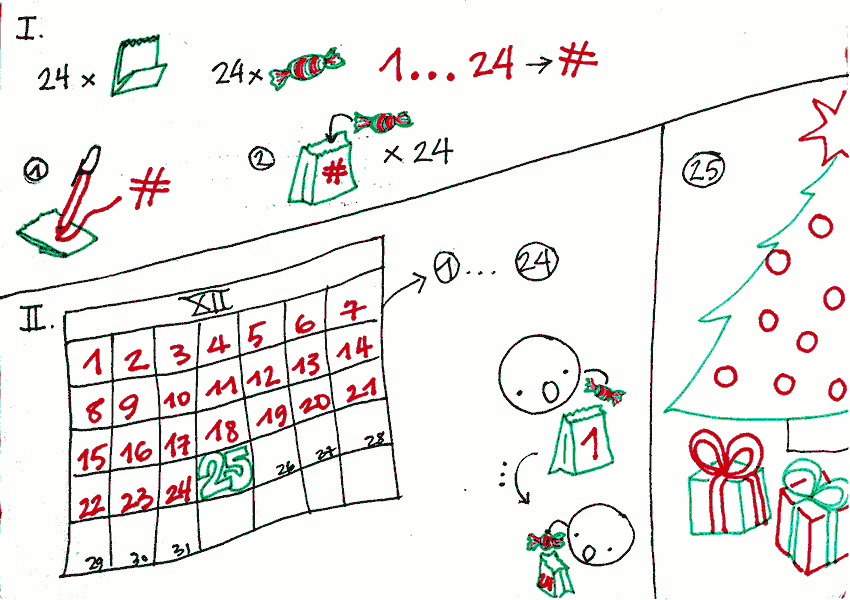 I.
24 x
24x
1... 24 → #
1
#
2
#
x 24
25
II.
XII
1 2 3 4 5 6 7
8 9 10 11 12 13 14
15 16 17 18 19 20 21
22 23 24 25 26 27 28
29 30 31
1 ... 24
1
24